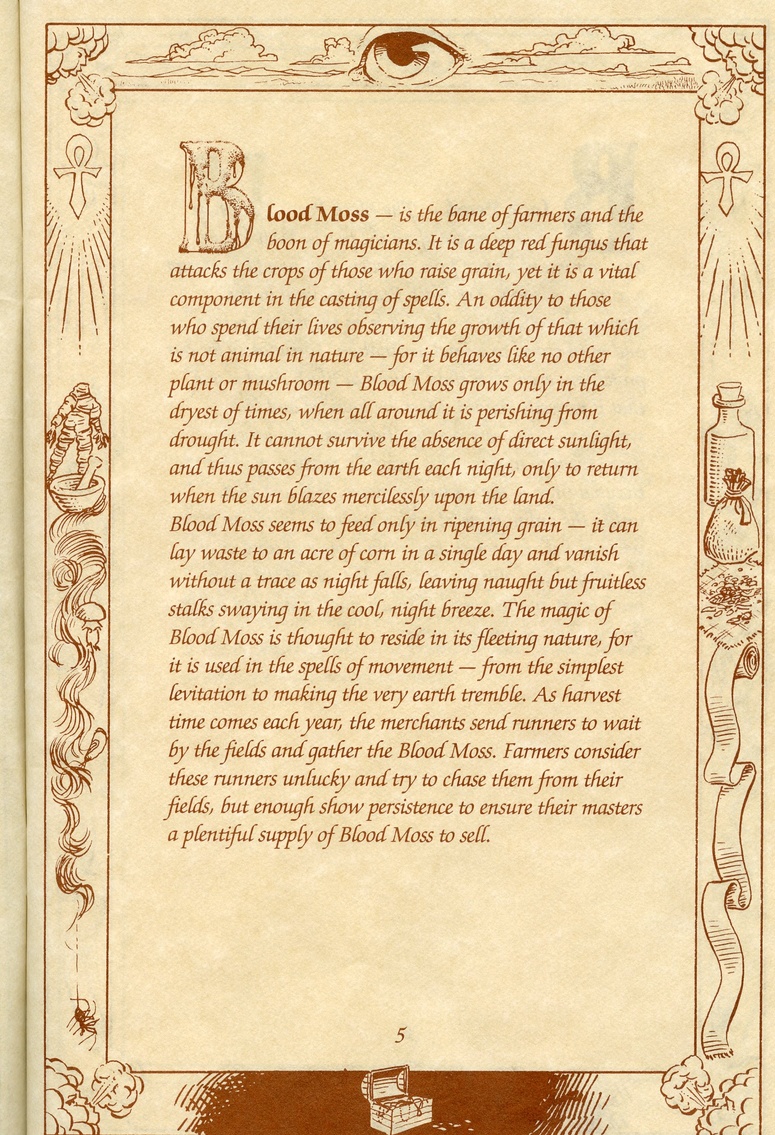 Blood Moss — is the bane of farmers and the
boon of magicians. It is a deep red fungus that
attacks the crops of those who raise grain, yet it is a vital
component in the casting of spells. An oddity to those
who spend their lives observing the growth of that which
is not animal in nature — for it behaves like no other
plant or mushroom — Blood Moss grows only in the
dryest of times, when all around it is perishing from
drought. It cannot survive the absence of direct sunlight,
and thus passes from the earth each night, only to return
when the sun blazes mercilessly upon the land.
Blood Moss seems to feed only in ripening grain — it can
lay waste to an acre of corn in a single day and vanish
without a trace as night falls, leaving naught but fruitless
stalks swaying in the cool, night breeze. The magic of
Blood Moss is thought to reside in its fleeting nature, for
it is used in the spells of movement — from the simplest
levitation to making the very earth tremble. As harvest
time comes each year, the merchants send runners to wait
by the fields and gather the Blood Moss. Farmers consider
these runners unlucky and try to chase them from their
fields, but enough show persistence to ensure their masters
a plentiful supply of Blood Moss to sell.
5